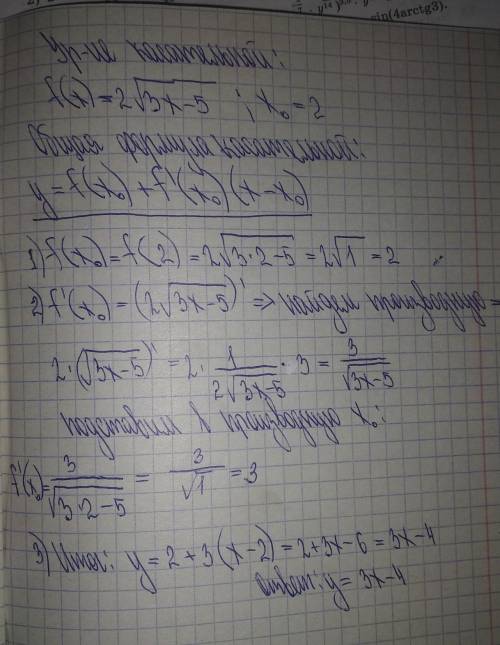 sin(4arctg3).
Ур-ие касательной:
f(x)=2√(3x-5) ; x₀=2
Общая формула касательной:
y=f(x₀)+f'(x₀)(x-x₀)
1) f(x₀)=f(2)=2√(3·2-5)=2√1=2
2) f'(x₀)=(2√(3x-5))' => найдем производную =
2·(√(3x-5))'=2·1/(2√(3x-5))·3=3/√(3x-5)
подставим в производную x₀:
f'(x₀)=3/√(3·2-5)=3/√1=3
3) Итог: y=2+3(x-2)=2+3x-6=3x-4
ответ: y=3x-4